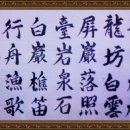 龍坊白
屏落照
臺岩泉石
白巖樵笛
行舟漁歌